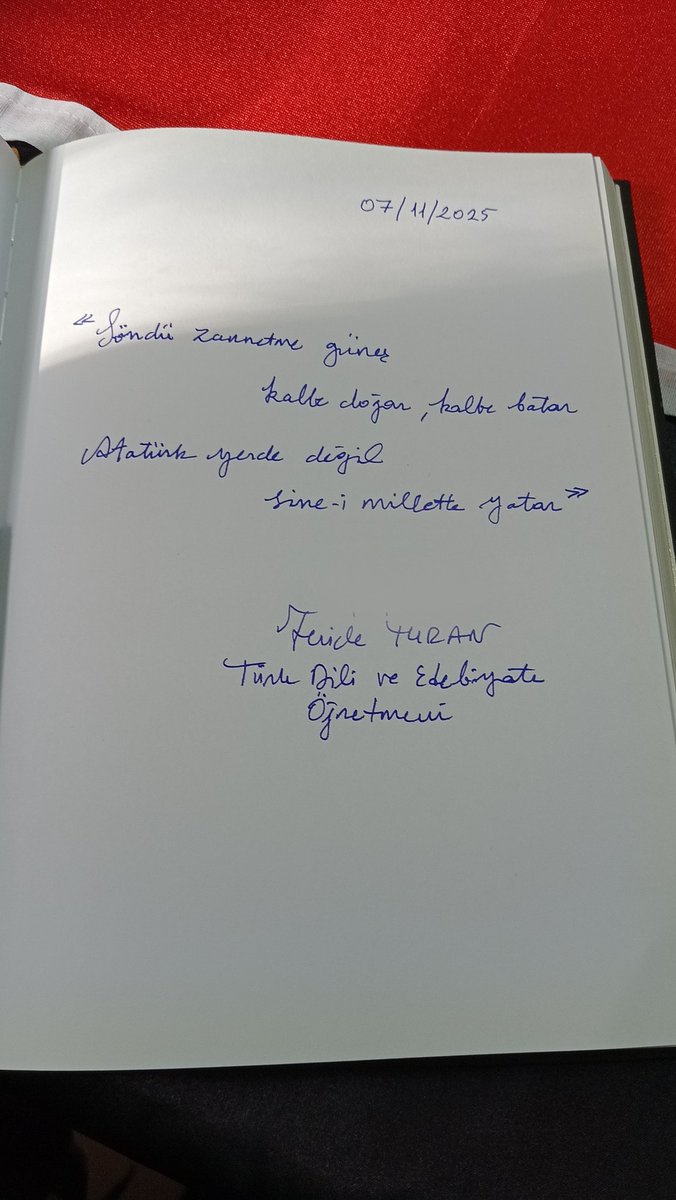 07/11/2025
"Söndü zannetme güneş
kalbe doğar, kalbe batar
Atatürk yerde değil
sine-i millette yatar"
Feride TURAN
Türk Dili ve Edebiyatı
Öğretmeni